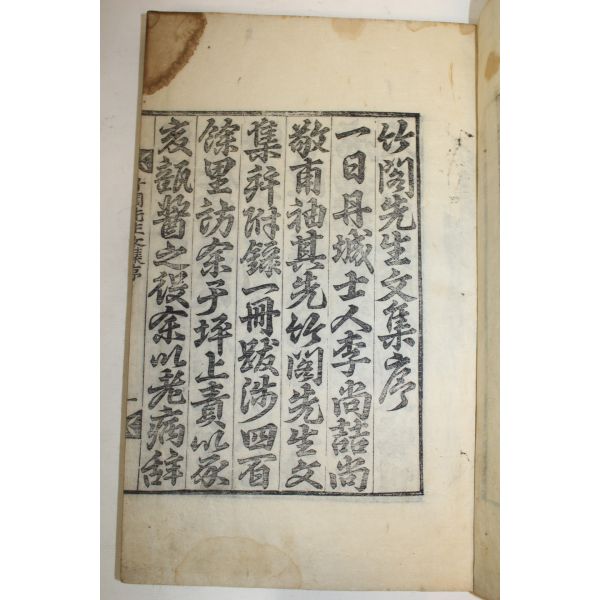 竹閣先生文集序
一日丹城士人李尙喆尙
敬甫袖其先竹閣先生文
集幷附錄一冊跋涉四百
餘里訪余于坪上責以玄
晏瓿醬之役余以老病辭
竹閣先生文集序
一